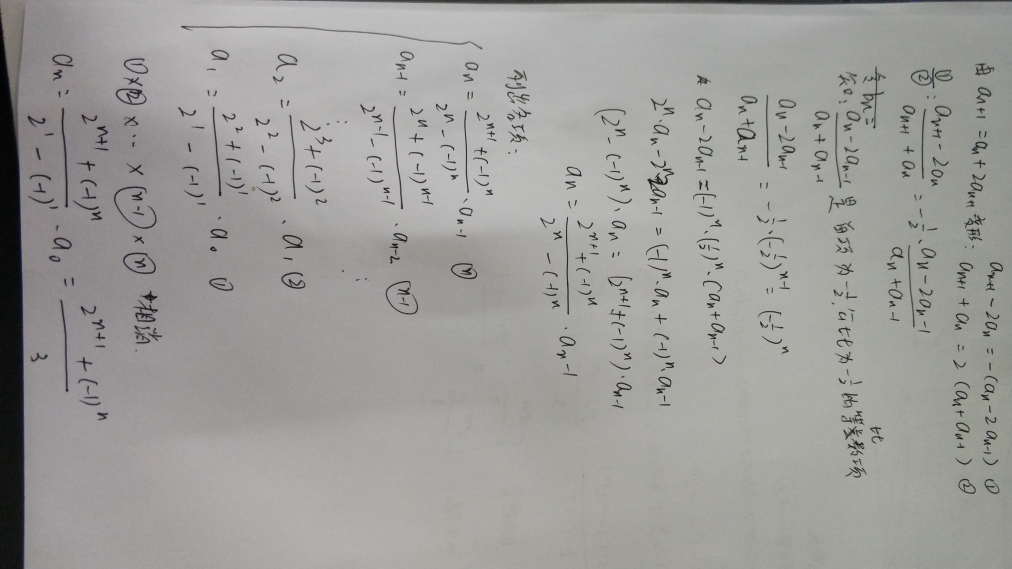 由 aₙ₊₁ = aₙ + 2aₙ₋₁ 变形: aₙ₊₁ - 2aₙ = -(aₙ - 2aₙ₋₁) ①
aₙ₊₁ + aₙ = 2(aₙ + aₙ₋₁) ②
①/②: (aₙ₊₁ - 2aₙ)/(aₙ₊₁ + aₙ) = -1/2 · (aₙ - 2aₙ₋₁)/(aₙ + aₙ₋₁)
(aₙ - 2aₙ₋₁)/(aₙ + aₙ₋₁) 是首项为 -1/2, 公比为 -1/2 的等比数项
(aₙ - 2aₙ₋₁)/(aₙ + aₙ₋₁) = -1/2 · (-1/2)ⁿ⁻¹ = (-1/2)ⁿ
aₙ - 2aₙ₋₁ = (-1)ⁿ · (1/2)ⁿ · (aₙ + aₙ₋₁)
2ⁿ · aₙ - 2ⁿ · 2aₙ₋₁ = (-1)ⁿ · aₙ + (-1)ⁿ · aₙ₋₁
(2ⁿ - (-1)ⁿ) · aₙ = (2ⁿ⁺¹ + (-1)ⁿ) · aₙ₋₁
aₙ = (2ⁿ⁺¹ + (-1)ⁿ)/(2ⁿ - (-1)ⁿ) · aₙ₋₁
列出各项:
aₙ = (2ⁿ⁺¹ + (-1)ⁿ)/(2ⁿ - (-1)ⁿ) · aₙ₋₁ ⓝ
aₙ₋₁ = (2ⁿ + (-1)ⁿ⁻¹)/(2ⁿ⁻¹ - (-1)ⁿ⁻¹) · aₙ₋₂ (n-1)
⋮ ⋮
a₂ = (2³ + (-1)²)/(2² - (-1)²) · a₁ ②
a₁ = (2² + (-1)¹)/(2¹ - (-1)¹) · a₀ ①
① × ② × ·· × (n-1) × ⓝ 相消.
aₙ = (2ⁿ⁺¹ + (-1)ⁿ)/(2¹ - (-1)¹) · a₀ = (2ⁿ⁺¹ + (-1)ⁿ)/3